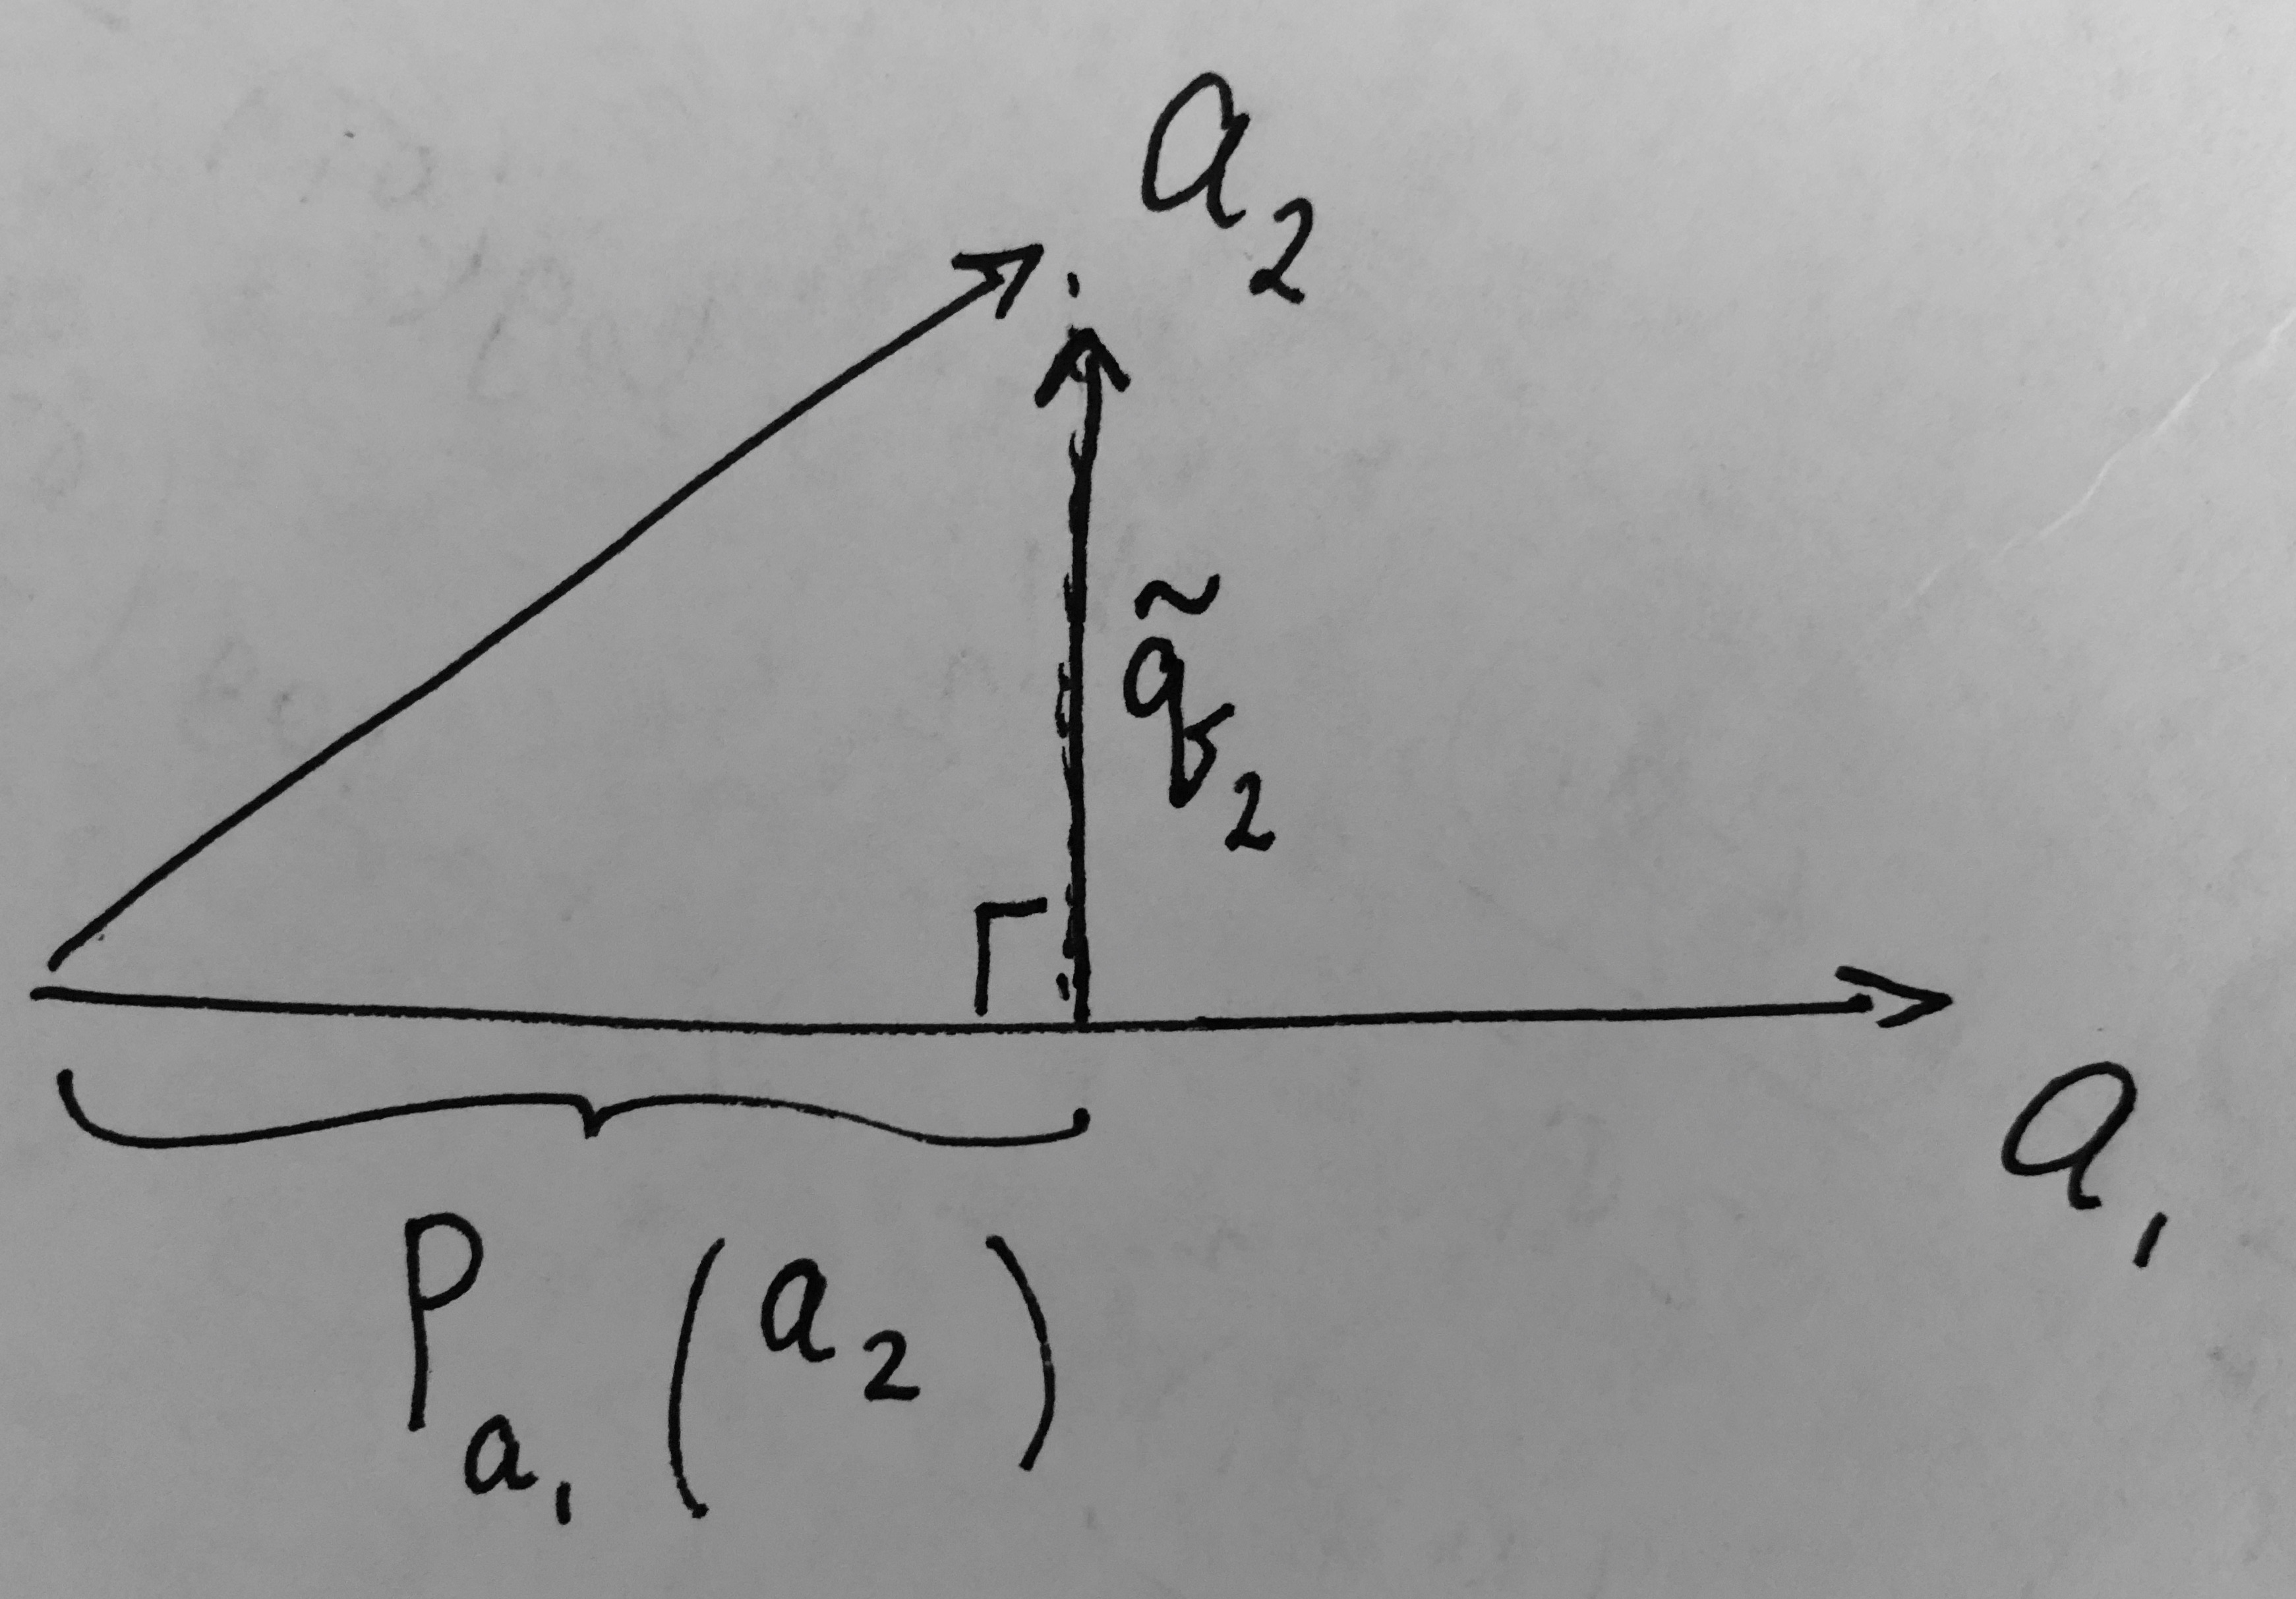 a₂
q̃₂
a₁
P_{a₁}(a₂)